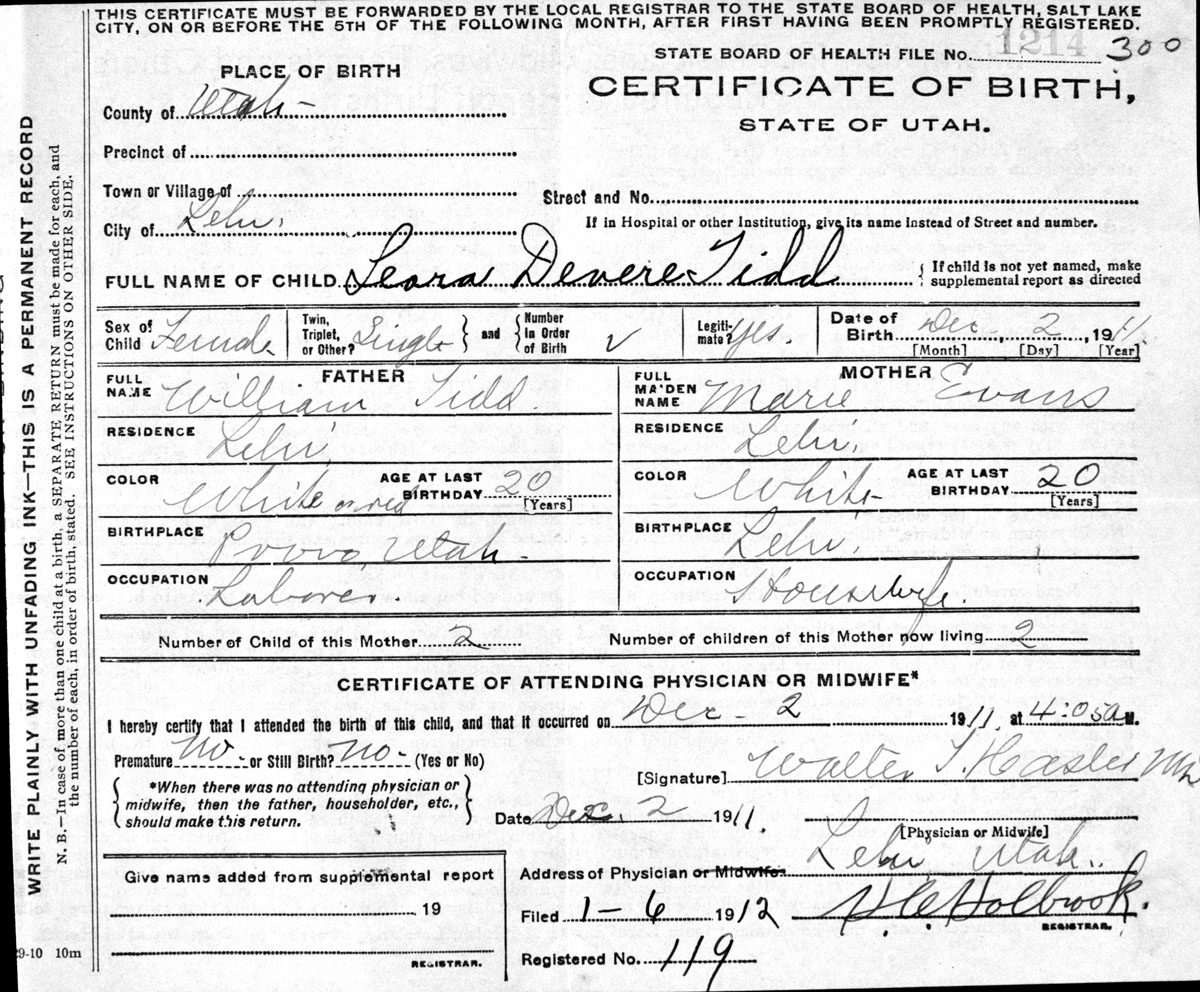 THIS CERTIFICATE MUST BE FORWARDED BY THE LOCAL REGISTRAR TO THE STATE BOARD OF HEALTH, SALT LAKE
CITY, ON OR BEFORE THE 5TH OF THE FOLLOWING MONTH, AFTER FIRST HAVING BEEN PROMPTLY REGISTERED.
STATE BOARD OF HEALTH FILE No. 1214 300
PLACE OF BIRTH
CERTIFICATE OF BIRTH,
STATE OF UTAH.
County of Utah-
Precinct of
Town or Village of
Street and No.
City of Lehi.
If in Hospital or other Institution, give its name instead of Street and number.
FULL NAME OF CHILD Leora Devere Tidd { If child is not yet named, make
supplemental report as directed
Sex of Child Female
Twin, Triplet, or Other? Single } and { Number In Order of Birth √
Legitimate? yes.
Date of Birth Dec 2, 1911.
[Month] [Day] [Year]
FATHER
FULL NAME William Tidd.
RESIDENCE Lehi,
COLOR White AGE AT LAST BIRTHDAY 20
[Years]
BIRTHPLACE Provo, Utah-
OCCUPATION Laborer.
MOTHER
FULL MAIDEN NAME Marie Evans
RESIDENCE Lehi,
COLOR White AGE AT LAST BIRTHDAY 20
[Years]
BIRTHPLACE Lehi,
OCCUPATION Housewife.
Number of Child of this Mother 2 Number of children of this Mother now living 2
CERTIFICATE OF ATTENDING PHYSICIAN OR MIDWIFE*
I hereby certify that I attended the birth of this child, and that it occurred on Dec- 2 1911, at 4:05 a M.
Premature no - or Still Birth? no- (Yes or No)
{ *When there was no attending physician or
midwife, then the father, householder, etc.,
should make this return. }
[Signature] Walter T. Hasler MD
Date Dec. 2 1911.
[Physician or Midwife]
Address of Physician or Midwife Lehi, Utah.
Give name added from supplemental report
19
REGISTRAR.
Filed 1-6 1912 H. C. Holbrook.
REGISTRAR.
Registered No. 119
29-10 10m
WRITE PLAINLY WITH UNFADING INK—THIS IS A PERMANENT RECORD
N. B.—In case of more than one child at a birth, a SEPARATE RETURN must be made for each, and
the number of each, in order of birth, stated. SEE INSTRUCTIONS ON OTHER SIDE.